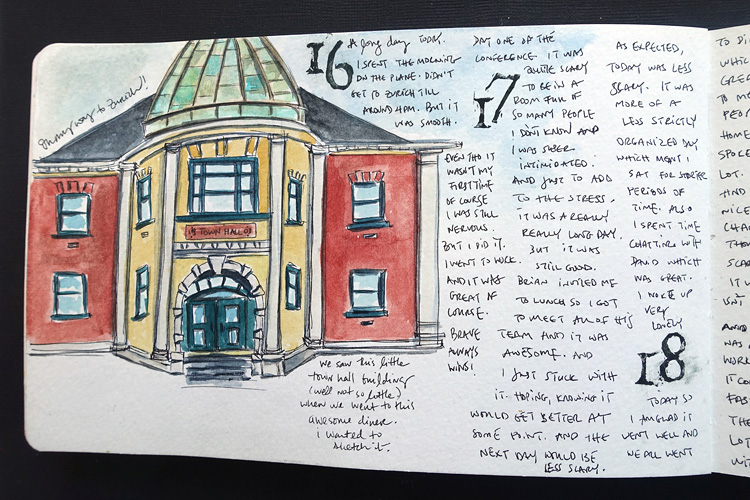 on my way to Zurich!
19 TOWN HALL 08
We saw this little
town hall building
(well not so little)
when we went to this
awesome diner.
I wanted to
sketch it.
16
A long day today.
I SPENT THE MORNING
ON THE PLANE. DIDN'T
GET TO ZURICH TILL
AROUND 4PM. BUT IT
WAS SMOOTH.
EVEN THO IT
WASN'T MY
FIRST TIME
OF COURSE
I WAS STILL
NERVOUS.
BUT I DID IT.
I WENT TO
AND IT WAS
GREAT OF
COURSE.
BRAVE
ALWAYS
WINS!
DAY ONE OF THE
CONFERENCE. IT WAS
17
QUITE SCARY
TO BE IN A
ROOM FULL OF
SO MANY PEOPLE
I DON'T KNOW AND
I WAS SUPER
INTIMIDATED.
AND JUST TO ADD
TO THE STRESS.
IT WAS A REALLY
REALLY LONG DAY.
BUT IT WAS
STILL GOOD.
BRIAN INVITED ME
TO LUNCH SO I GOT
TO MEET ALL OF HIS
TEAM AND IT WAS
AWESOME. AND
I JUST STUCK WITH
IT. HOPING, KNOWING IT
WOULD GET BETTER AT
SOME POINT. AND THE
NEXT DAY WOULD BE
LESS SCARY.
AS EXPECTED,
TODAY WAS LESS
SCARY. IT WAS
MORE OF A
LESS STRICTLY
ORGANIZED DAY
WHICH MEANT I
SAT FOR SHORTER
PERIODS OF
TIME. ALSO
I SPENT TIME
CHATTING WITH
DAVID WHICH
WAS GREAT.
I WOKE UP
VERY
LONELY
18
TODAY SO
I AM GLAD IT
WENT WELL AND
WE ALL WENT
TO
WHICH
TO
HOME
SPOKE
LOT.
AND
NICE
IT W
ISN'T
AND
WAS
WORK
IT
THE
LOT